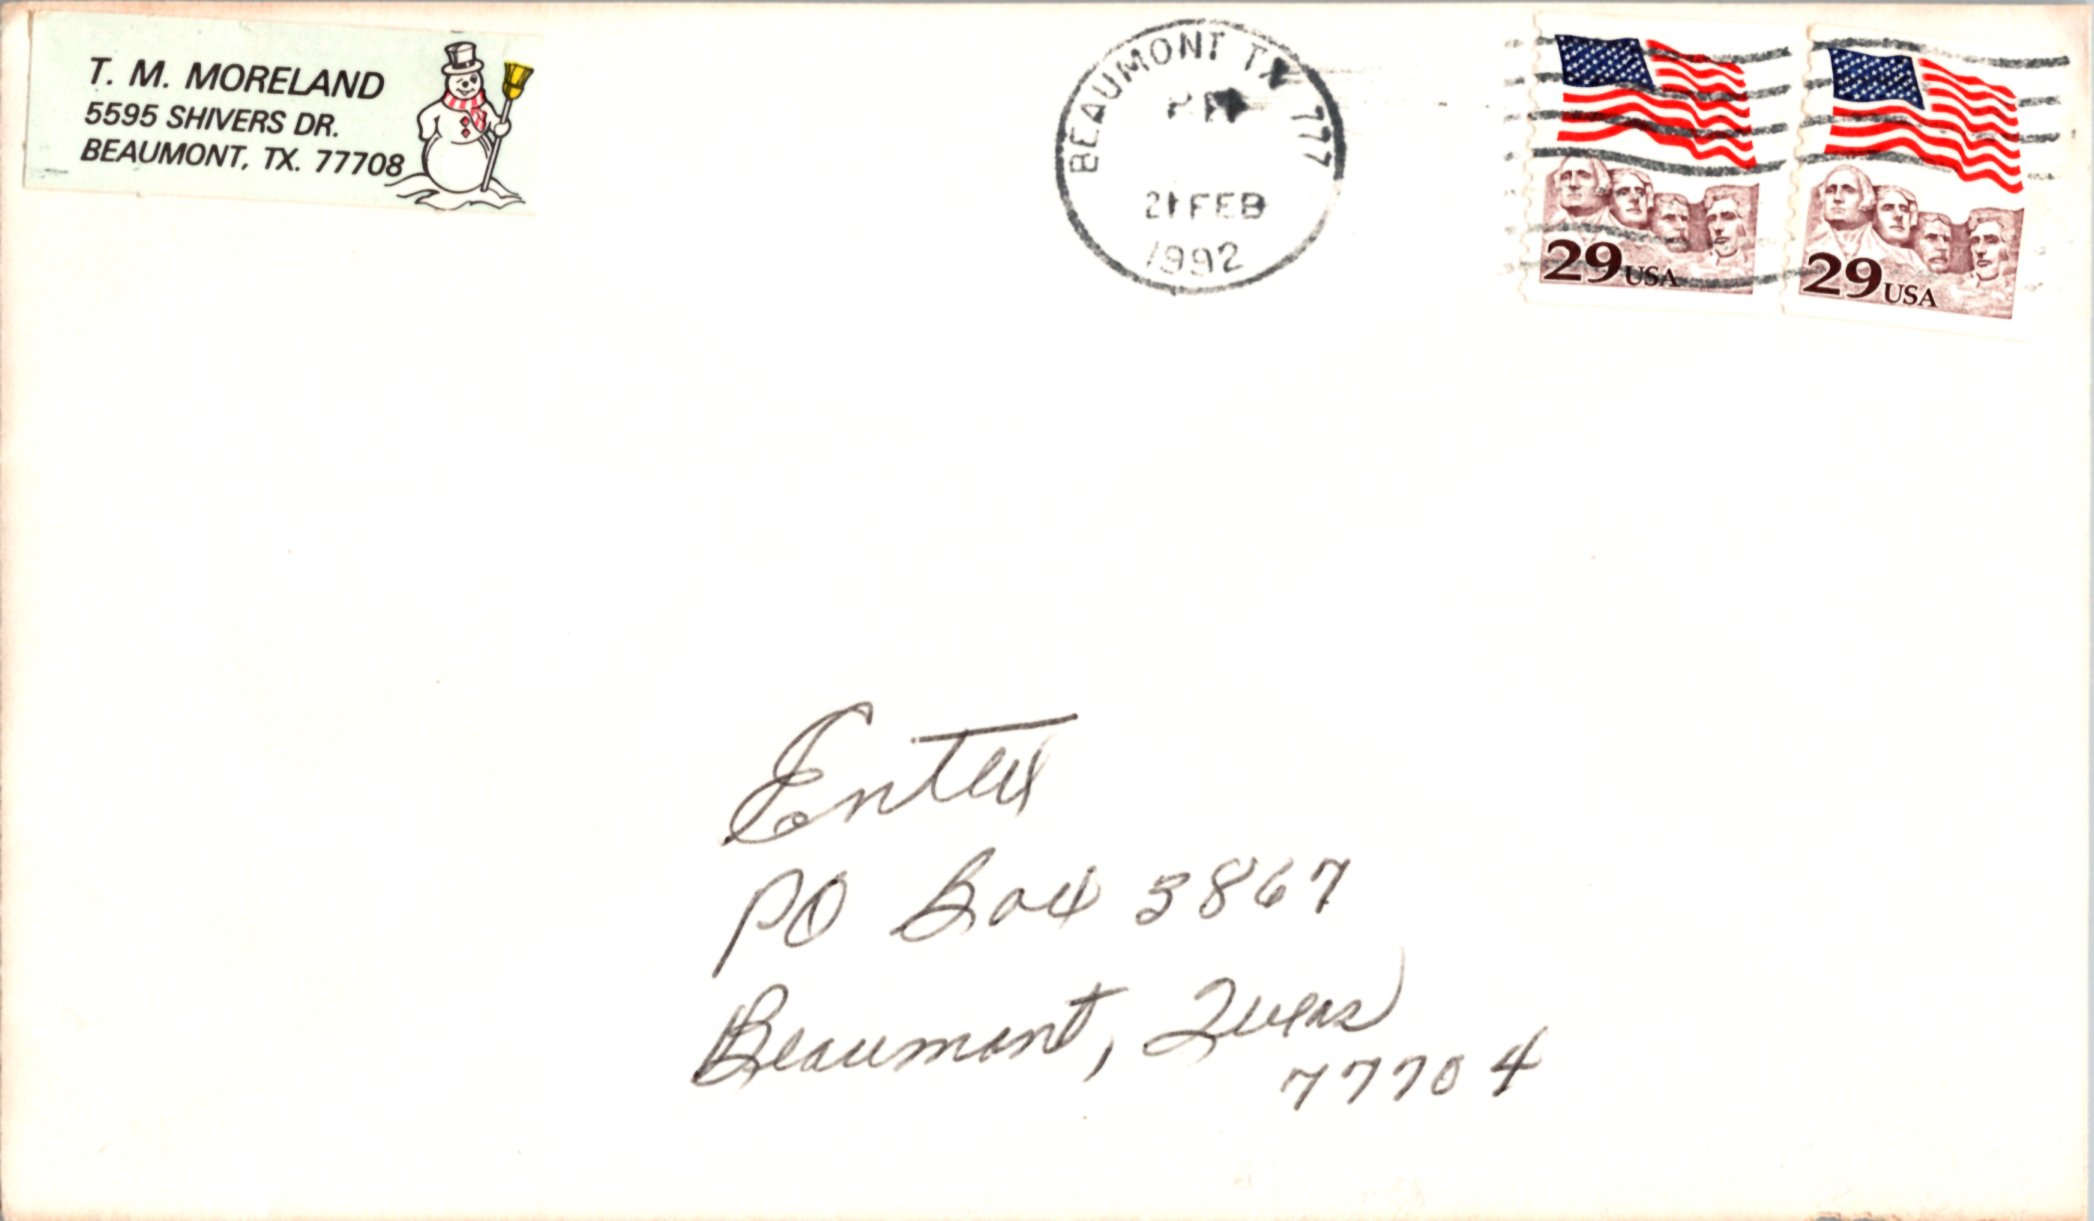 T. M. MORELAND
5595 SHIVERS DR.
BEAUMONT, TX. 77708
BEAUMONT TX 777
21 FEB
1992
29 USA
29 USA
Entex
PO Box 3867
Beaumont, Texas
77704